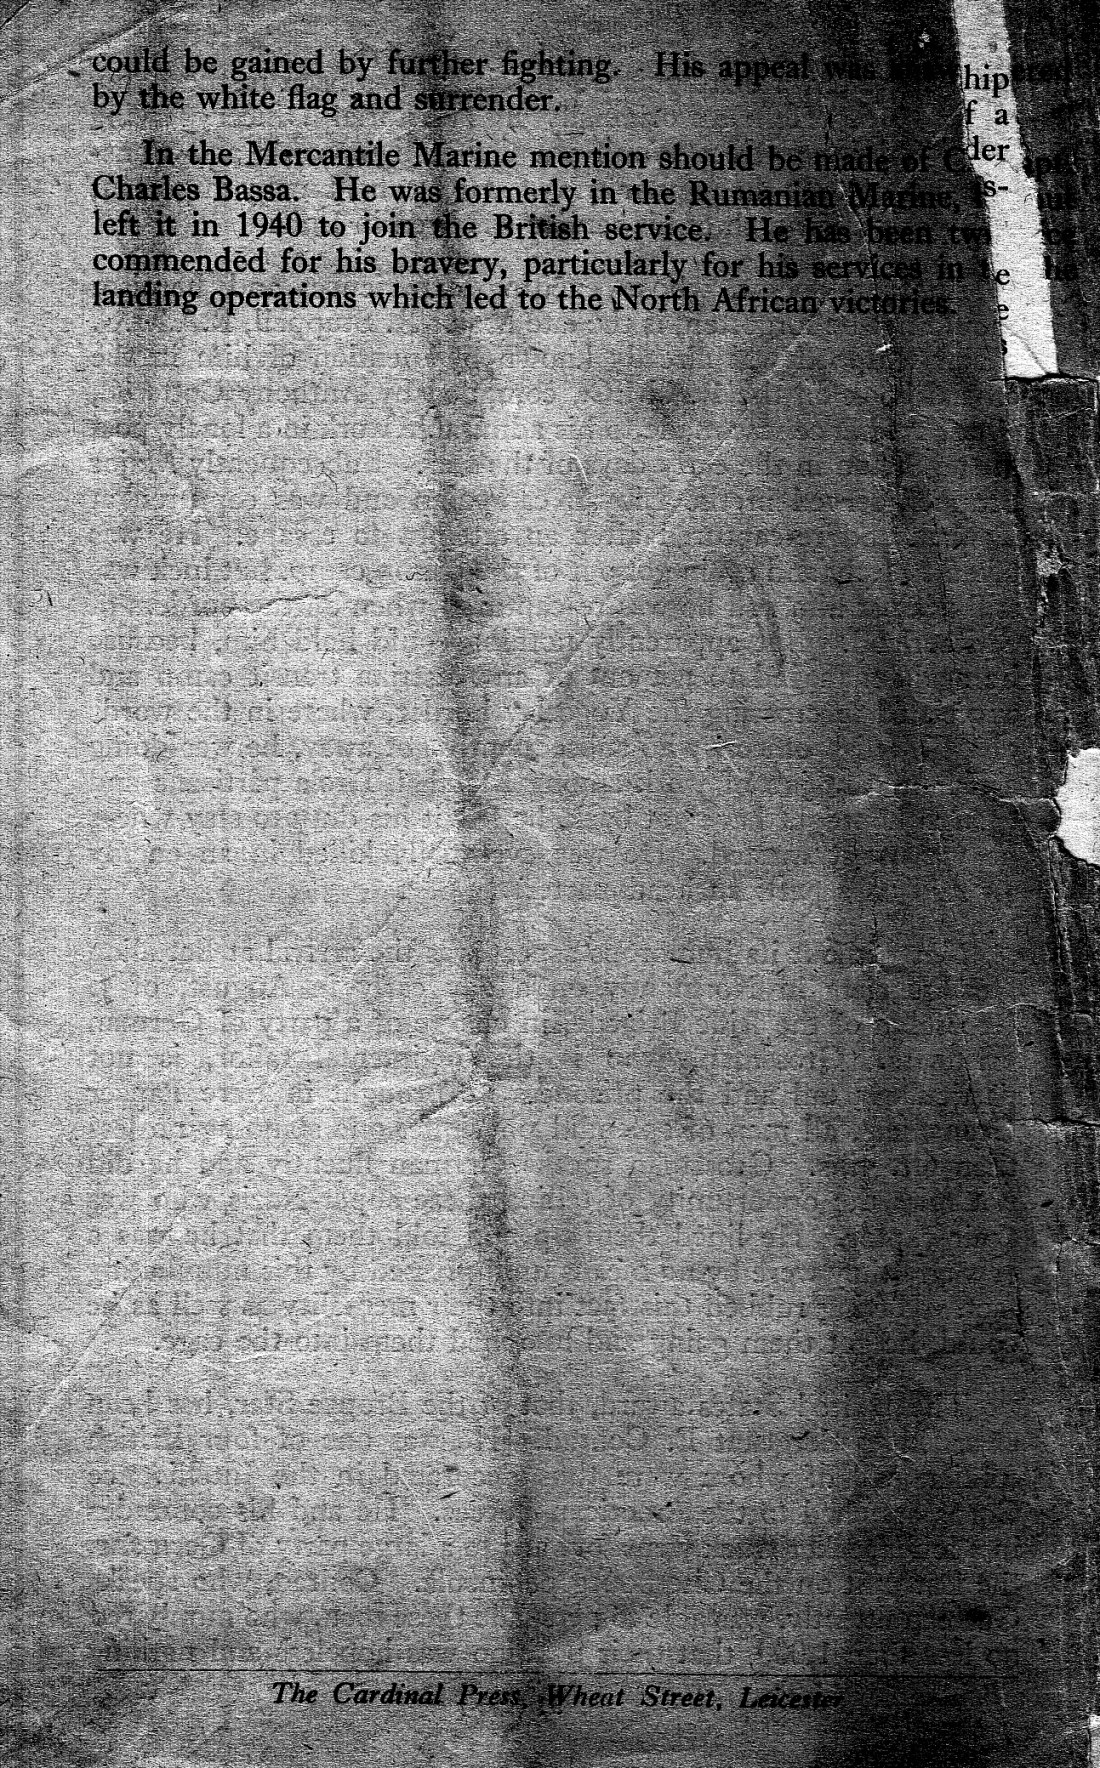 could be gained by further fighting. His appeal was
by the white flag and surrender.
In the Mercantile Marine mention should be made of
Charles Bassa. He was formerly in the Rumanian Marine,
left it in 1940 to join the British service. He has been
commended for his bravery, particularly for his services in
landing operations which led to the North African victories.
hip
f a
der
s-
e
e
The Cardinal Press, Wheat Street, Leicester